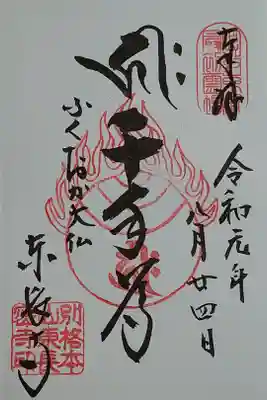 奉拝
令和元年
八月廿四日
千手尊
ふくおか大仏
東長寺
別格本
山東長
密寺印